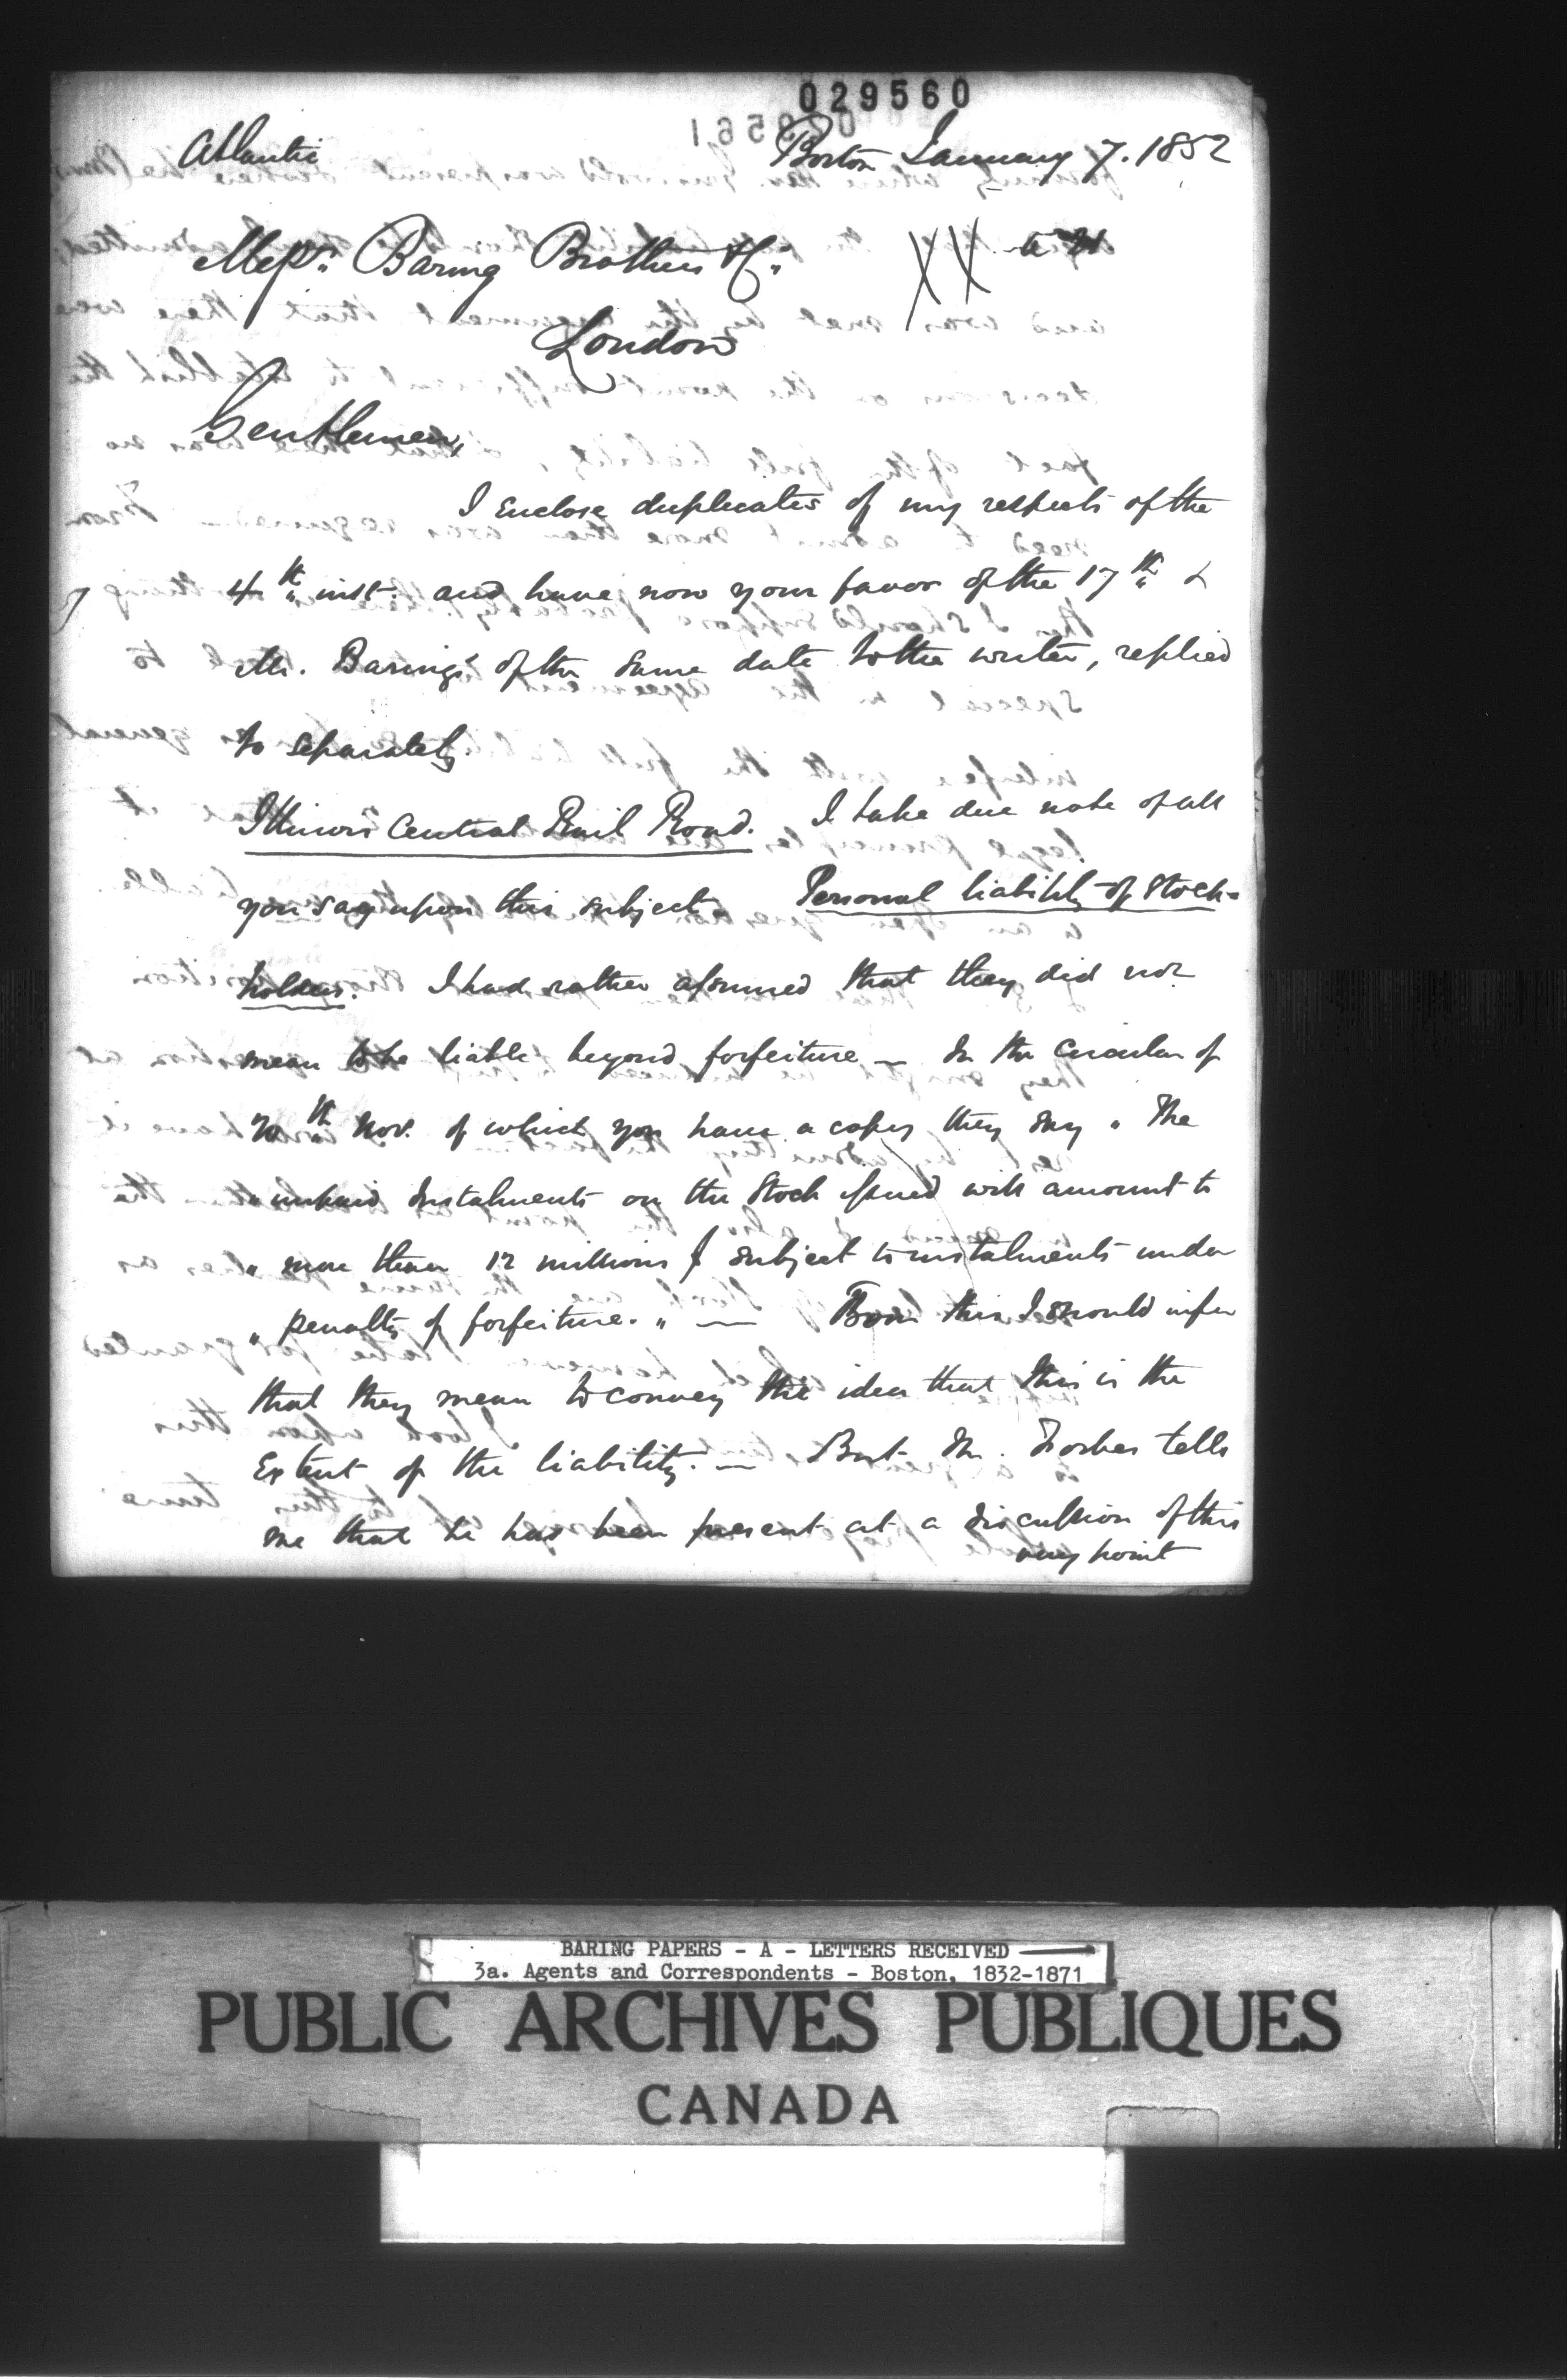 029560
Atlantic
Boston January 7. 1852
Messrs. Baring Brothers & Co.
London
Gentlemen,
I enclose duplicates of my respects of the
4th inst. and have now your favor of the 17th &
Mr. Baring's of the same date to the writer, replied
to separately.
Illinois Central Rail Road. I take due note of all
you say upon this subject Personal liability of Stock-
holders. I had rather assumed that they did not
mean to be liable beyond forfeiture — In the Circular of
th Nov. of which you have a copy they say " The
" unpaid Instalments on the Stock issued will amount to
" more than 12 millions $ subject to instalments under
" penalty of forfeiture. " — From this I should infer
that they mean to convey the idea that this is the
Extent of the liability. — But Mr. Forbes tells
me that he has been present at a discussion of this
very point
BARING PAPERS - A - LETTERS RECEIVED
3a. Agents and Correspondents - Boston, 1832-1871
PUBLIC ARCHIVES PUBLIQUES
CANADA